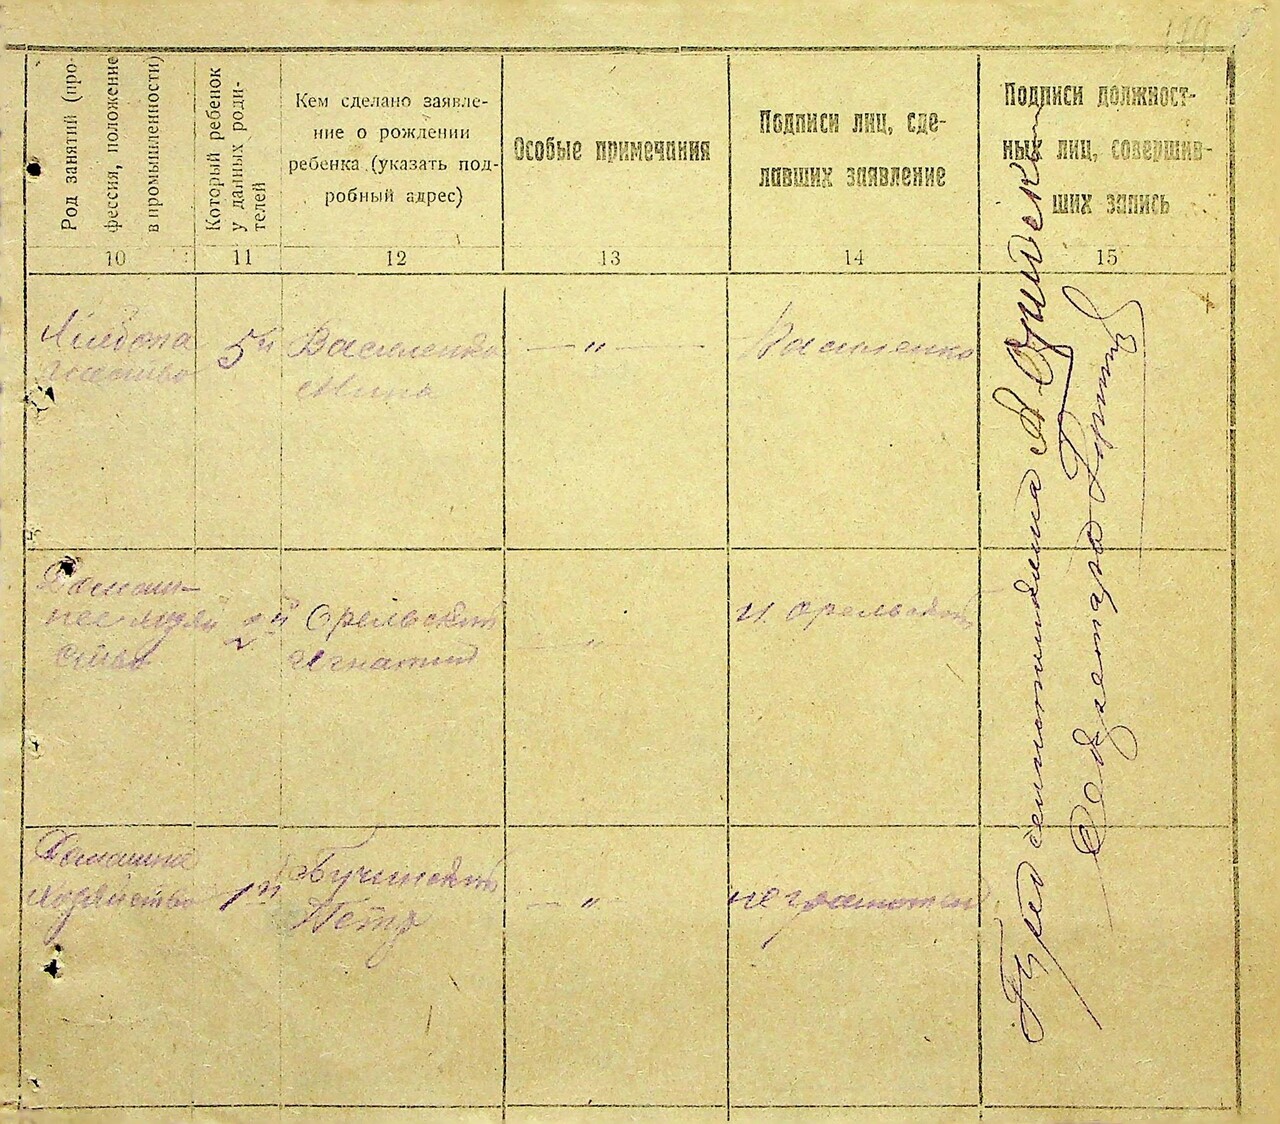 Род занятий (про-
фессия, положение
в промышленности)
Который ребенок
у данных роди-
телей
Кем сделано заявле-
ние о рождении
ребенка (указать под-
робный адрес)
Особые примечания
Подписи лиц, сде-
лавших заявление
Подписи должност-
ных лиц, совершив-
ших запись
10 11 12 13 14 15
Хлебопа
шество
5й
Василенко
— " —
Василенко
Домаш-
нее хозяй
ство
2й
Орельский
Игнатий
— "
И. Орельский
Домашна
хозяйство
1й
Бучинский
Петр
— "
неграмотен
Пред
Секретарь